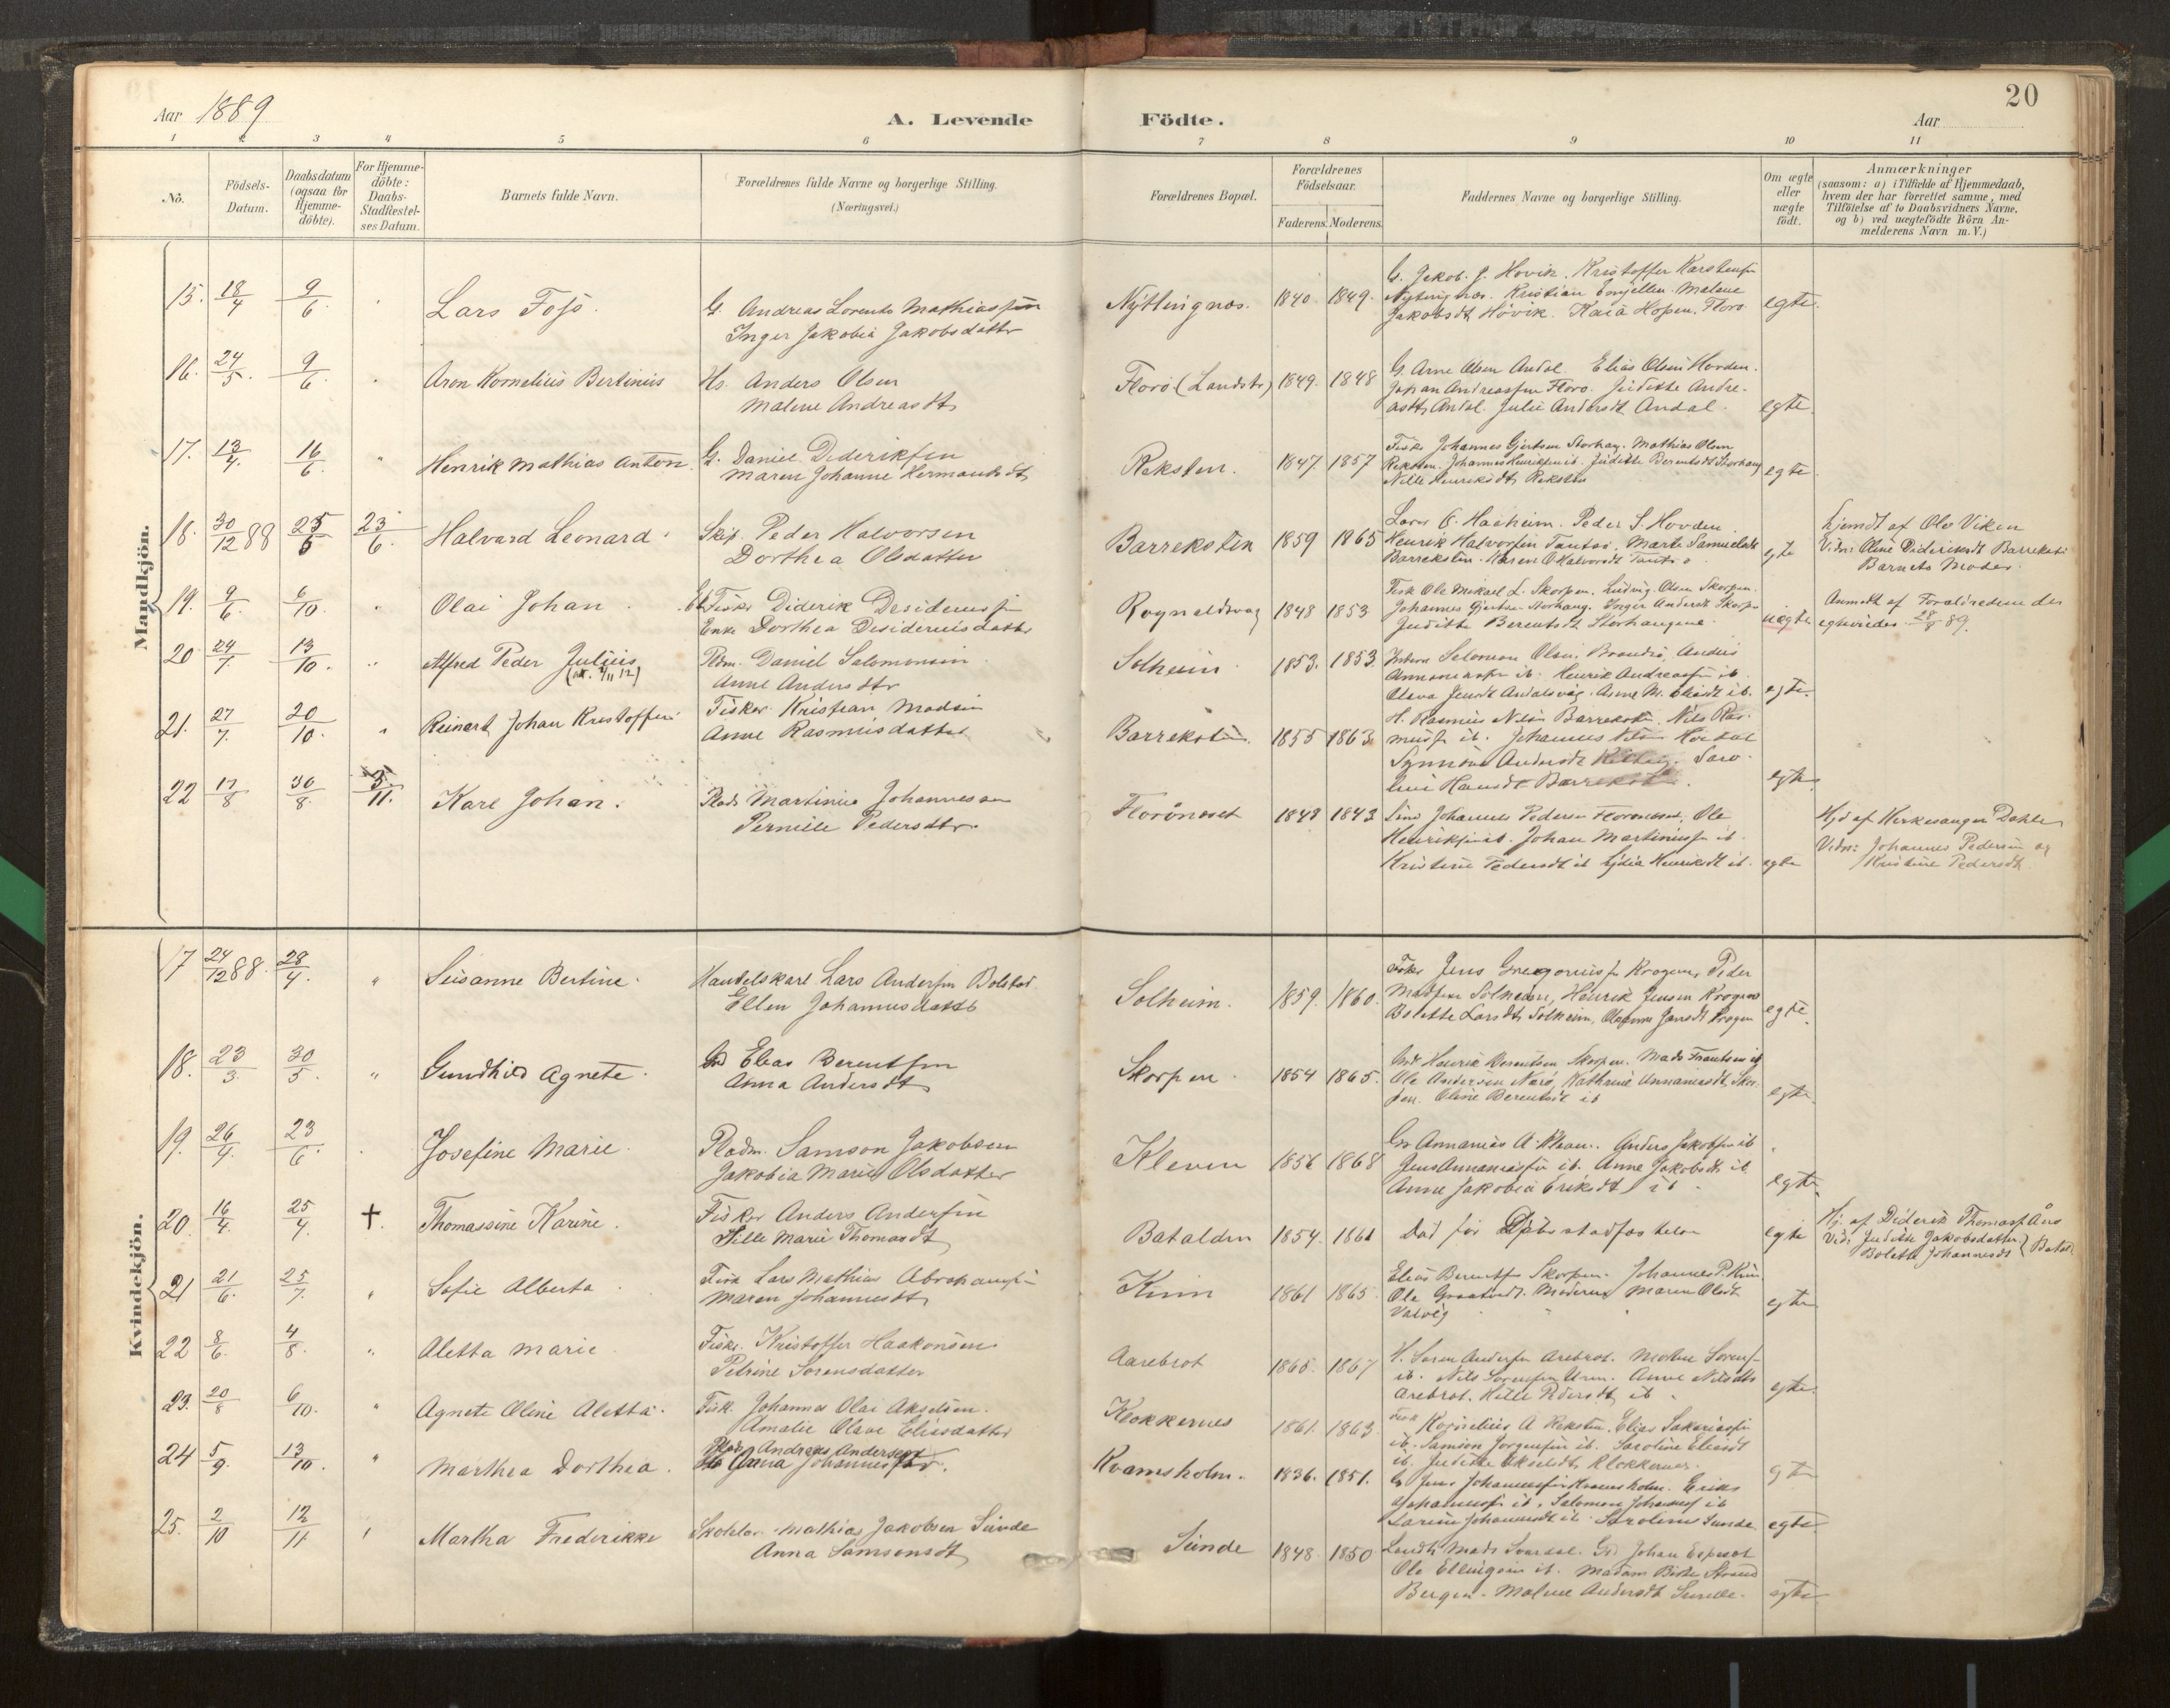 Aar 1889
A. Levende
Födte.
20
Aar
1 2 3 4 5 6 7 8 9 10 11
No.
Födsels-
Datum.
Daabsdatum
(ogsaa for
Hjemme-
döbte).
For Hjemme-
döbte:
Daabs-
Stadfæstel-
ses Datum.
Barnets fulde Navn.
Forældrenes fulde Navne og borgerlige Stilling.
(Næringsvei.)
Forældrenes Bopæl.
Forældrenes
Födselsaar.
Faderens. Moderens.
Faddernes Navne og borgerlige Stilling.
Om ægte
eller
uægte
födt.
Anmærkninger
(saasom: a) i Tilfælde af Hjemmedaab,
hvem der har forrettet samme, med
Tilföielse af to Daabsvidners Navne,
og b) ved uægtefödte Börn An-
melderens Navn m. V.)
Mandkjön.
15. 18/4 9/6 Lars Fosö.
G. Andreas Lorents Mathiassen
Inger Jakobia Jakobsdatter
Nyttingnæs. 1840. 1849.
G. Jakob J. Hovik. Kristoffer Karstensen
Nytingnæs. Kristian Malene
Jakobsdt Hövik. Kaia Hopen. Florö.
egte.
16. 24/5. 9/6. Aron Kornelius Bertinius
Hs. Anders Olsen
Malene Andreasdt
Florö (Landstr.) 1849. 1848
G. Arne Olsen Andal. Elias Olsen Hovden.
Johan Andreassen Florö. Juditte Andre-
asdt Andal. Julie Andersdt Andal.
egte.
17. 13/4. 16/6 " Henrik Mathias Anton.
G. Daniel Dideriksen
Maren Johanne Hermansdt
Reksten. 1847. 1857
Fisker Johannes Gjertsen Storhaug. Mathias Olsen
Reksten. Johannes Henriksen ib. Juditte Berentsdt Storhaug
Nille Henriksdt Reksten
egte
18. 30/12 88 23/6 23/6. Halvard Leonard.
Skip. Peder Halvorsen
Dorthea Olsdatter
Barreksten 1859 1865
Lars O. Hasheim. Peder S. Hovden.
Henrik Halvorsen Tantsö. Marte Samuelsdt
Barreksten. Karen O Halvorsdt Tantsö
egte
hjemdt af Ole Viken
Vidn: Oline Dideriksdt Barreksten
Barnets Moder.
19. 9/6. 6/10. " Olai Johan.
Fisker Diderik Desideriussen
Enke Dorthea Desideriusdatter
Rognaldsvag 1848 1853
Fisk Ole Mikael L. Skorpen. Ludvig Olsen Skorpen.
Johannes Gjertsen Storhaug. Inger Andersdt Skorpen
Juditte Berentsdt Storhaugene.
uægte
Anmeldt af Forældrene der
egteviedes 28/8 89.
20 24/7 13/10. " Alfred Peder Julius
Pldm. Daniel Salomonsen
Anne Andersdtr
Solheim. 1853. 1853.
Salomon Olsen Brandsö, Anders
Annaniassen ib. Henrik Andreassen ib.
Olava Jensdt Andalsvåg. Anne M. Eliasdt ib.
egte.
21. 27/7. 20/10. " Reinert Johan Kristoffer
Fisker Kristian Madsen
Anne Rasmusdatter
Barreksten 1855 1863
H. Rasmus Nilsen Barreksten. Nils Ras-
mussen ib. Johannes Nilsen Hovdal
Synneve Andersdt Saro-
line Hansdt Barreksten.
egte
22 17/8 30/8. 3/11. Karl Johan.
Plads Martinius Johannessen
Pernille Pedersdtr.
Florönæset 1843 1843
Johannes Pedersen Florönæset, Ole
Henriksen ib. Johan Martiniussen ib.
Kristine Pedersdt ib Lydia Henriksdt ib.
egte
Hjd af Kirkesanger Dahle
Vidn: Johannes Pedersen og
Kristine Pedersdt.
Kvindekjön.
17 24/12 88. 28/4. " Susanne Bertine.
Handelskarl Lars Andersen Bolstad.
Ellen Johannesdatter
Solheim. 1859. 1860.
Fisker Jens Gregoriussen Krogen, Peder
Madsen Solheim, Henrik Jensen Krogen
Bolette Larsdt Solheim, Jensdt Krogen
egte.
18. 23/3. 30/5. " Gundhild Agnete.
Gd Elias Berentsen
Anna Andersdt
Skorpen. 1854 1865.
Gdr Henrik Berentsen Skorpen. Mads Frantsen ib
Ole Andersen Narö, Kathrine Annaniasdt Skor-
pen. Oline Berentsdt ib
egte.
19. 26/4. 23/6. Josefine Marie.
Pladm. Samson Jakobsen
Jakobia Marie Olsdatter
Kleven 1856 1868
Gr Annanias A. Kleven. Anders Jakobsen ib
Jens Annaniassen ib. Anne Jakobsdt ib.
Anne Jakobia Eriksdt ib.
egte.
20. 16/4. 25/4. †. Thomassine Karine.
Fisker Anders Andersen
Sille Marie Thomasdt
Batalden 1854. 1861
Död för Daabsstadfæstelse
egte
Hj. af Diderik Thomass. Åns
Vidn: Juditte Jakobsdatter
Bolette Johannesdt } Batal.
21 21/6. 25/7. " Sofie Alberta.
Fisk Lars Mathias Abrahamsen
Maren Johannesdt
Kinn 1861 1865.
Elias Berentsen Skorpen. Johannes P. Kinn
Ole Moderen Maren Olsdt
Valvåg
egte
22 8/6. 4/8. " Aletta Marie
Fisker. Kristoffer Haakonsen
Petrine Sörensdatter
Aarebrot 1865. 1867
H. Sören Andersen Arebrot. Mathæ Sörens.
ib. Nils Sörensen Urm. Anne Nilsdt
Arebrot. Hille Pedersdt ib.
egte.
23. 20/8 6/10. " Agnete Oline Aletta.
Fisk. Johannes Olai Akselsen.
Amalie Olave Eliasdatter
Klokkernes 1861. 1863.
Fisk Kornelius A Reksten. Elias Sakariassen
ib. Samson Jörgensen ib. Saroline Eliasdt
ib. Juditte Akselsdt Klokkernes.
egte
24 5/9. 13/10. " Marthea Dorthea.
Plads Andreas Andersen
Anna Johannesdtr.
Kvamsholm. 1836. 1851.
G Jens Johannessen Kvamsholm. Eriks
Johannessen ib. Salomon Johannes. ib
Larine Johannesdt ib. Saroline Sunde
egte
25. 2/10 12/11. Martha Frederikke
Skolelær. Mathias Jakobsen Sunde
Anna Samsonsdt
Sunde 1848. 1850
Landh. Mads Svardal. Gd Johan Espeset
Ole Ellingsen ib. Madam Berthe Strand
Bergen. Malene Andersdt Sunde.
egte